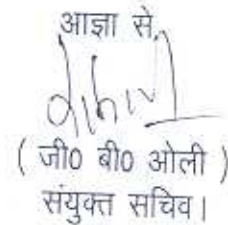 आज्ञा से,
( जी0 बी0 ओली )
संयुक्त सचिव।